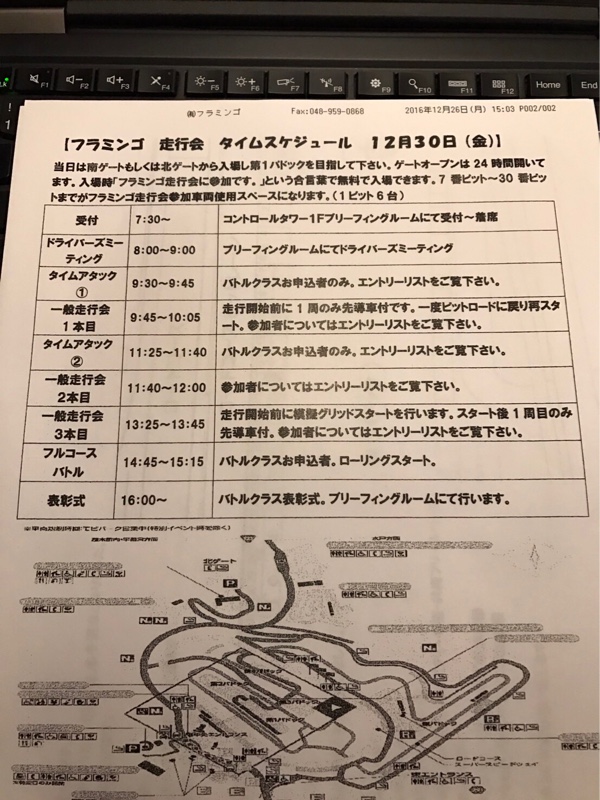 F1 F2 F3 F4 F5 F6 F7 F8 F9 F10 F11 F12 Home End
㈲フラミンゴ Fax:048-959-0868 2016年12月26日(月) 15:03 P002/002
【フラミンゴ 走行会 タイムスケジュール 12月30日(金)】
当日は南ゲートもしくは北ゲートから入場し第1パドックを目指して下さい。ゲートオープンは24時間開いて
ます。入場時「フラミンゴ走行会に参加です。」という合言葉で無料で入場できます。7番ピット～30番ピッ
トまでがフラミンゴ走行会参加車両使用スペースになります。(1ピット6台)
受付 7:30～ コントロールタワー1Fブリーフィングルームにて受付～着席
ドライバーズミー
ティング 8:00～9:00 ブリーフィングルームにてドライバーズミーティング
タイムアタック
① 9:30～9:45 バトルクラスお申込者のみ。エントリーリストをご覧下さい。
一般走行会
1本目 9:45～10:05 走行開始前に1周のみ先導車付です。一度ピットロードに戻り再スタ
ート。参加者についてはエントリーリストをご覧下さい。
タイムアタック
② 11:25～11:40 バトルクラスお申込者のみ。エントリーリストをご覧下さい。
一般走行会
2本目 11:40～12:00 参加者についてはエントリーリストをご覧下さい。
一般走行会
3本目 13:25～13:45 走行開始前に模擬グリッドスタートを行います。スタート後1周目のみ
先導車付。参加者についてはエントリーリストをご覧下さい。
フルコース
バトル 14:45～15:15 バトルクラスお申込者。ローリングスタート。
表彰式 16:00～ バトルクラス表彰式。ブリーフィングルームにて行います。
水戸方面
北ゲート
P
第2パドック
第1パドック
P
ロードコース
スーパースピードウェイ
東エントランス